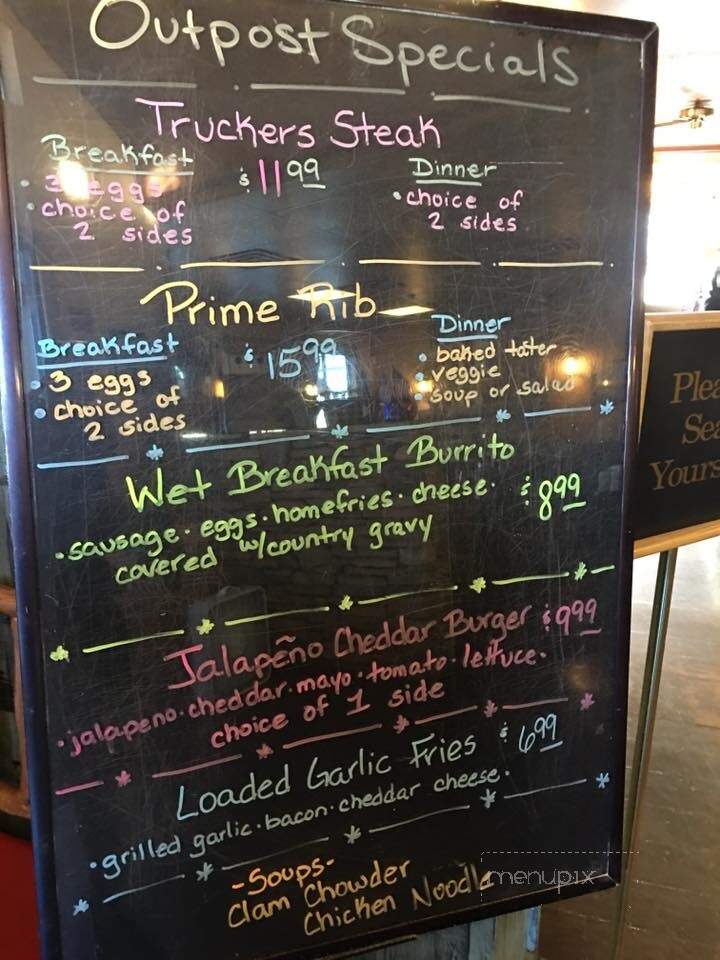 Outpost Specials
Truckers Steak
Breakfast
• 3 eggs
• choice of
2 sides
$11.99
Dinner
• choice of
2 sides
Prime Rib
Breakfast
• 3 eggs
• choice of
2 sides
$15.99
Dinner
• baked tater
• veggie
• soup or salad
Wet Breakfast Burrito
• sausage · eggs · homefries · cheese · $8.99
covered w/country gravy
Jalapeño Cheddar Burger $9.99
• jalapeno · cheddar · mayo · tomato · lettuce ·
choice of 1 side
Loaded Garlic Fries $6.99
• grilled garlic · bacon · cheddar cheese ·
- Soups -
Clam Chowder
Chicken Noodle
menupix